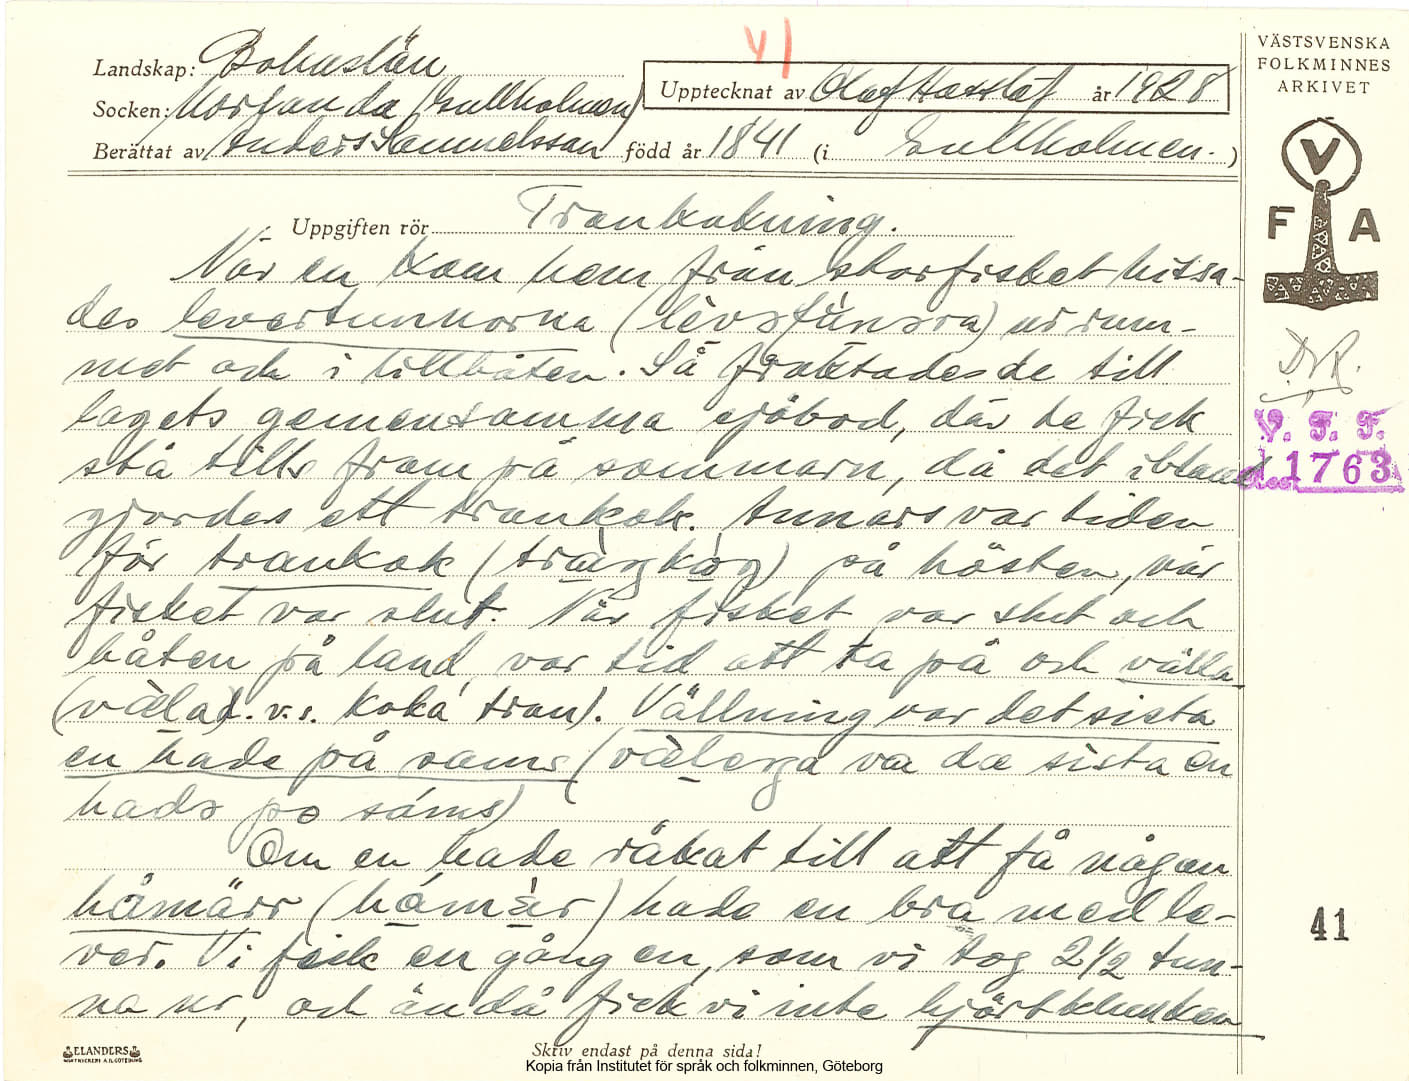 41
Landskap: Bohuslän
Socken: Morlanda (Gullholmen)
Upptecknat av Olof Hasslöf år 1928
Berättat av Anders Samuelsson född år 1841 (i Gullholmen.)
VÄSTSVENSKA
FOLKMINNES
ARKIVET
V
F A
V. F. F.
1763
Uppgiften rör Trankokning.
När en kom hem från storfisket hissa-
des levertunnorna ur rum-
met och i lillbåten. Så fraktades de till
lagets gemensamma sjöbod, där de fick
stå tills fram på sommarn, då det ibland
gjordes ett trankok. Annars var tiden
för trankok (trångkòg) på hösten, när
fisket var slut. När fisket var slut och
båten på land, var tid att ta på och välla
(vàla d.v.s. koka tran). Vällning var det sista
en hade på sams (vàlenga va da sista en
hadə po sáms)
Om en hade råkat till att få någon
håmärr (håmàr) hade en bra med le-
ver. Vi fick en gång en, som vi tog 2 1/2 tun-
na ur, och ändå fick vi inte hjärtklunken
41
ELANDERS
Skriv endast på denna sida!
Kopia från Institutet för språk och folkminnen, Göteborg